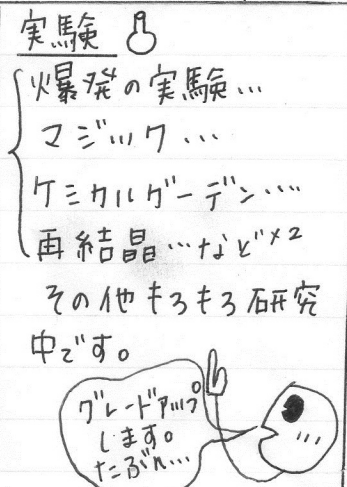 実験
爆発の実験…
マジック…
ケミカルガーデン…
再結晶…など×2
その他もろもろ研究
中です。
グレードアップ
します。
たぶん…